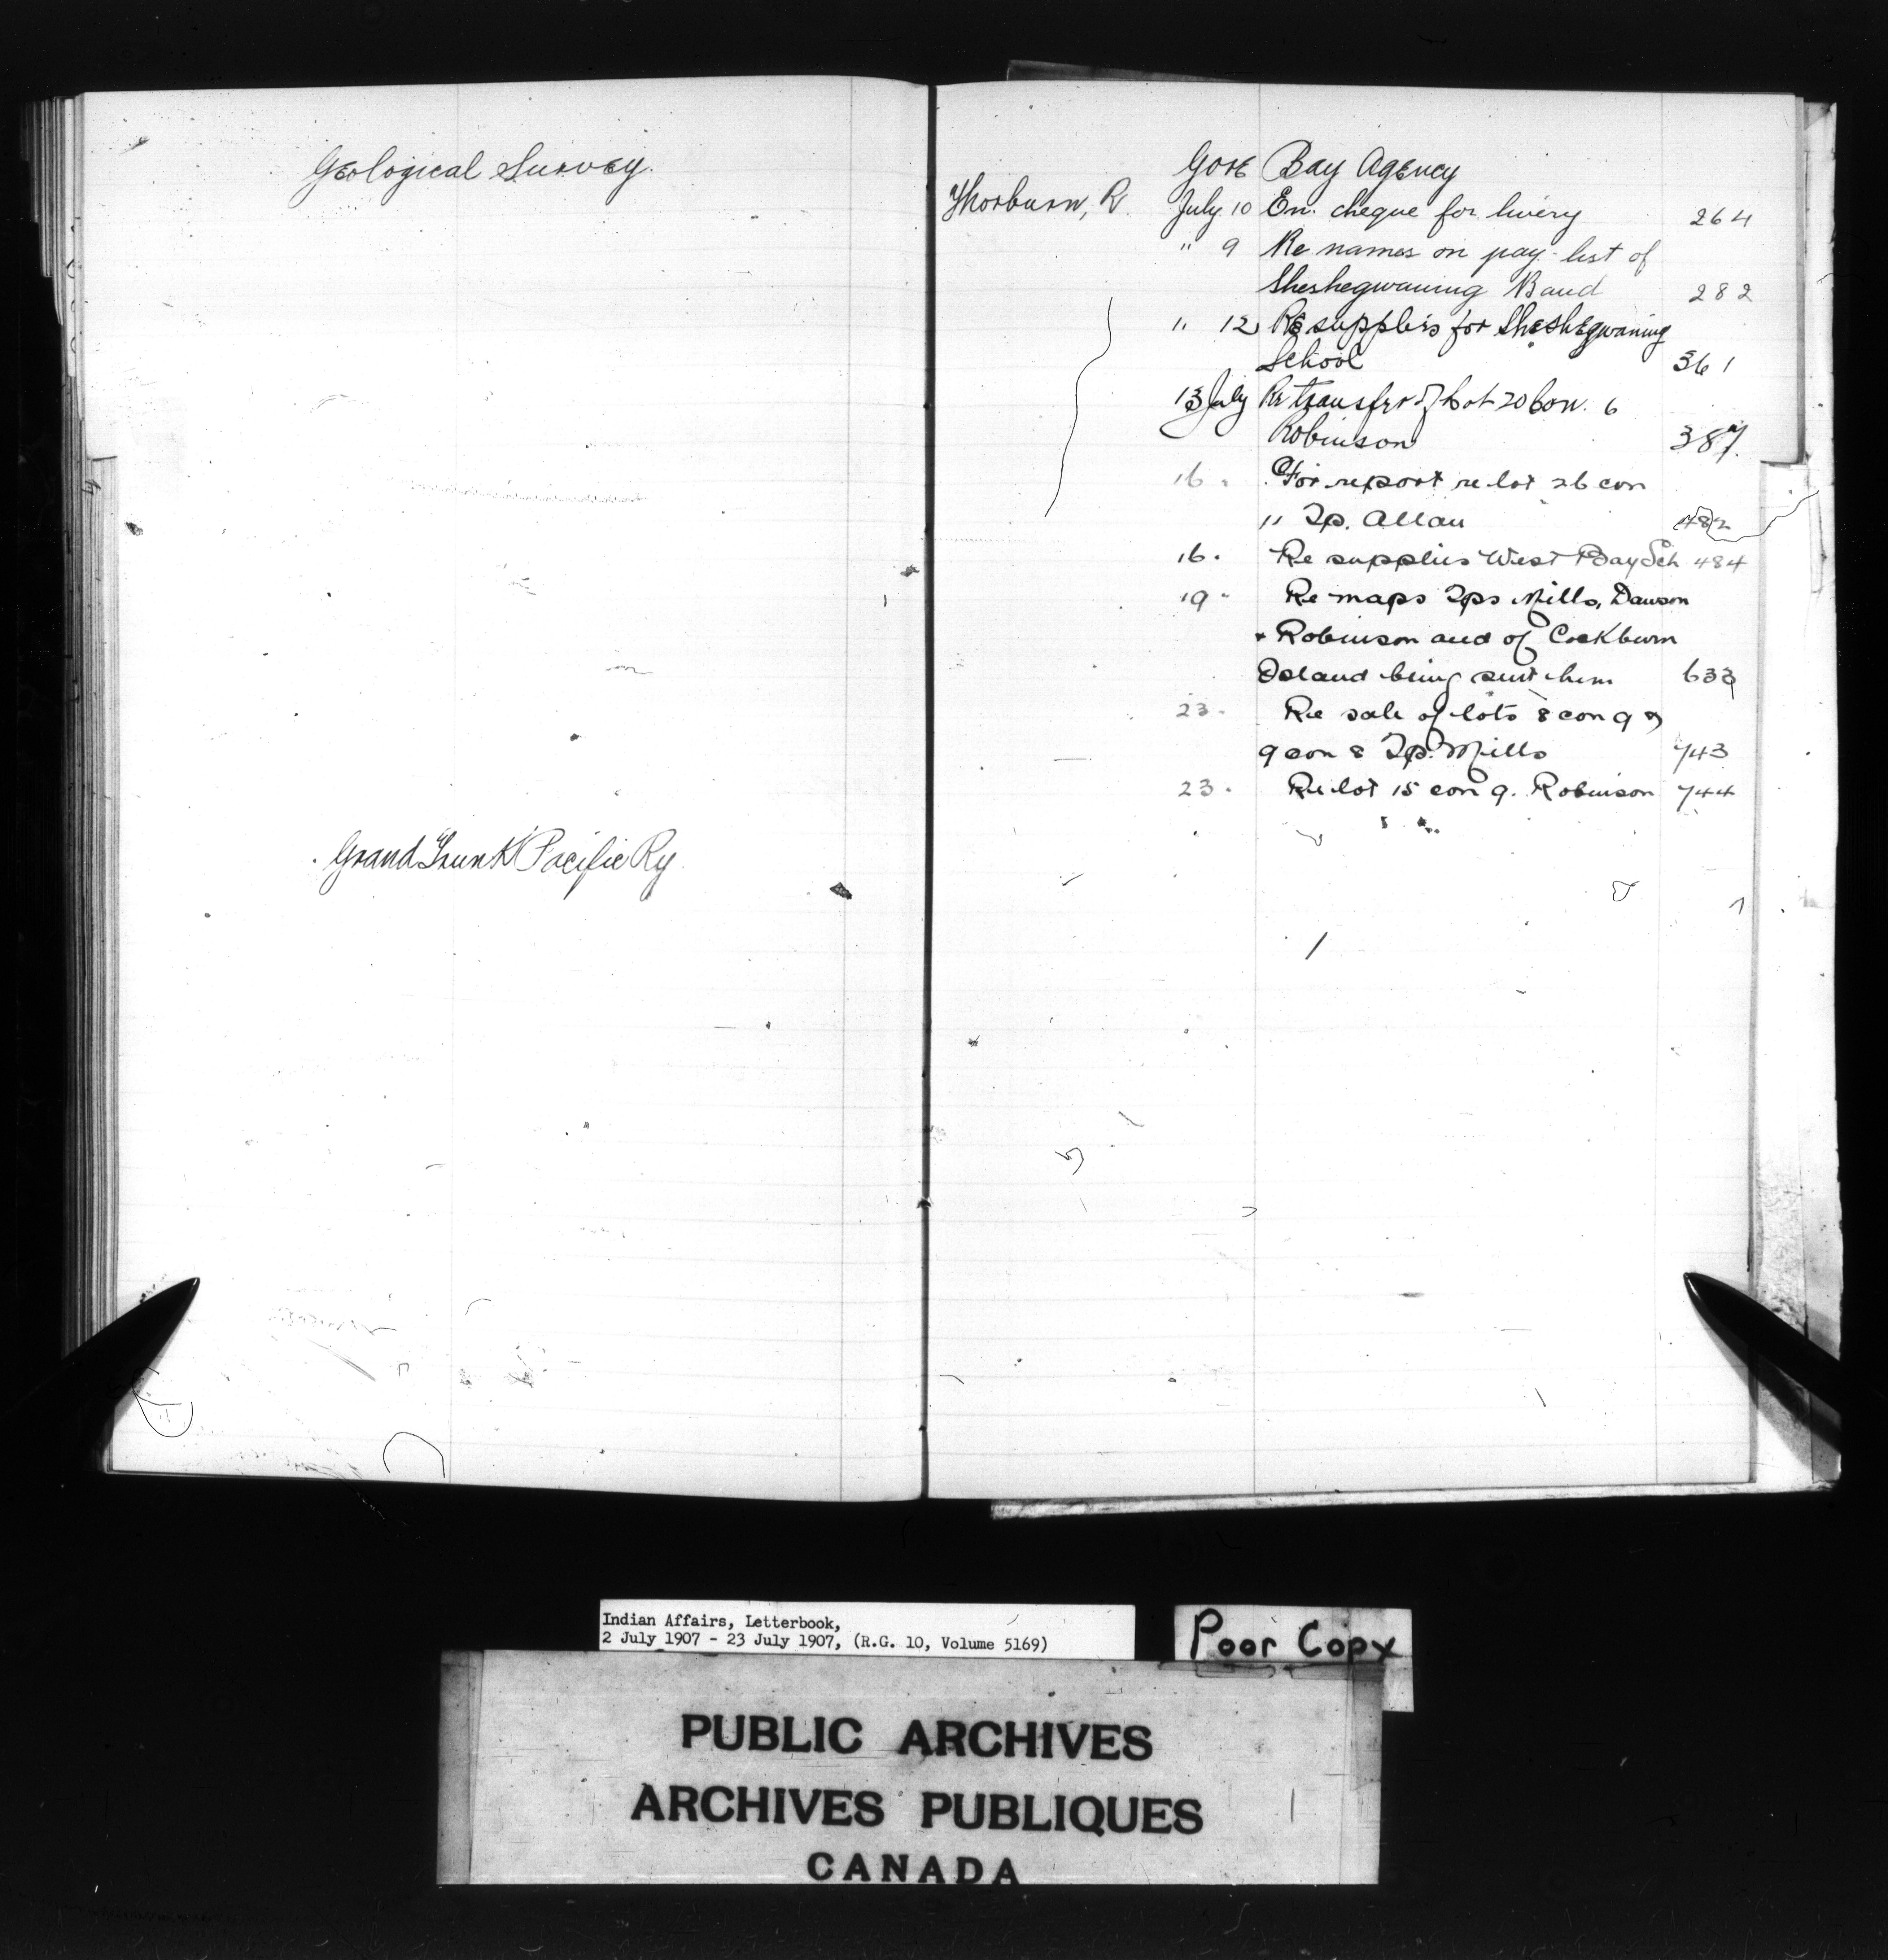 Geological Survey.
Grand Trunk Pacific Ry.
Gore Bay Agency
Thorburn, R. July 10 En. cheque for livery 264
" 9 Re names on pay-list of
Sheshegwaning Band 282
" 12 Re supplies for Sheshegwaning
School 361
13 July Re transfer of Lot 20 Con. 6
Robinson 387.
16 . For report re lot 26 con
11 Tp. Allan 482
16 . Re supplies West Bay Sch 484
19 " Re maps Tps Mills, Dawson
+ Robinson and of Cockburn
Island being sent him 633
23 . Re sale of lots 8 con 9 &
9 con 8 Tp. Mills 743
23 . Re lot 15 con 9. Robinson 744
Indian Affairs, Letterbook,
2 July 1907 - 23 July 1907, (R.G. 10, Volume 5169)
Poor Copy
PUBLIC ARCHIVES
ARCHIVES PUBLIQUES
CANADA